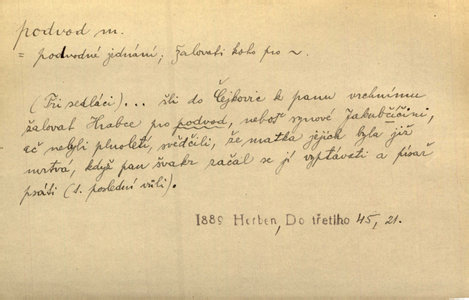 podvod m.
= podvodné jednání; žalovati koho pro ~.
(Tři sedláci)... šli do Čejkovic k panu vrchnímu
žalovat Hrabce pro podvod, neboť synové Jakubčičini,
ač nebyli plnoletí, svědčili, že matka jejich byla již
mrtvá, když pan švakr začal se jí vyptávati a písař
psáti (t. poslední vůli).
1889 Herben, Do třetího 45, 21.